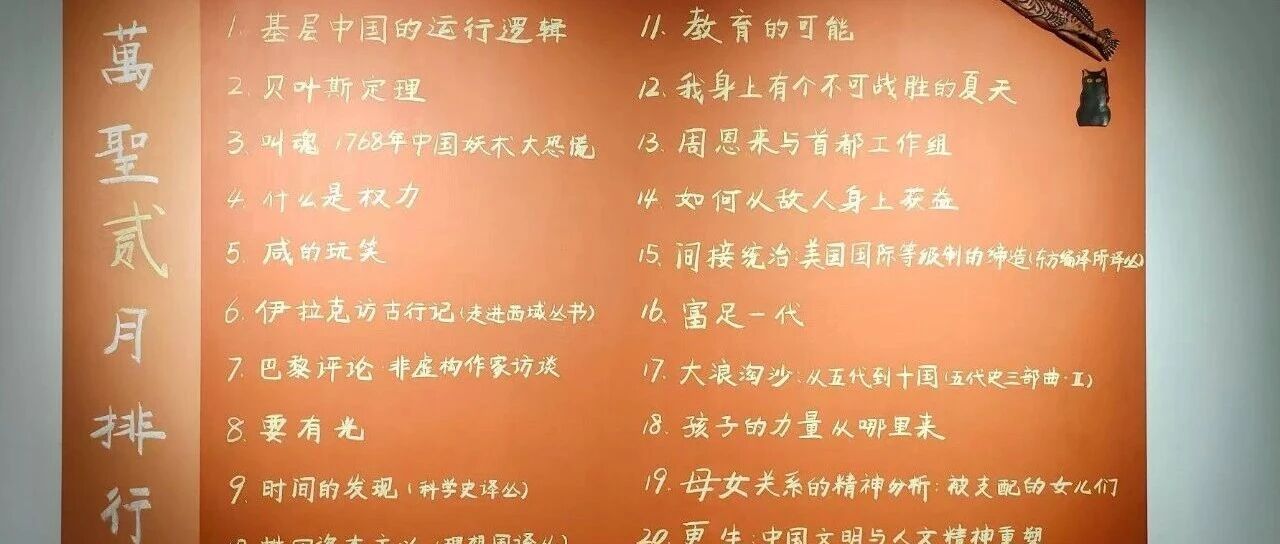 萬聖贰月排行
1. 基层中国的运行逻辑
2. 贝叶斯定理
3. 叫魂：1768年中国妖术大恐慌
4. 什么是权力
5. 咸的玩笑
6. 伊拉克访古行记（走进西域丛书）
7. 巴黎评论·非虚构作家访谈
8. 要有光
9. 时间的发现（科学史译丛）
11. 教育的可能
12. 我身上有个不可战胜的夏天
13. 周恩来与首都工作组
14. 如何从敌人身上获益
15. 间接统治：美国国际等级制的缔造（东方编译所译丛）
16. 富足一代
17. 大浪淘沙：从五代到十国（五代史三部曲·Ⅱ）
18. 孩子的力量从哪里来
19. 母女关系的精神分析：被支配的女儿们
20. 更生：中国文明与人文精神重塑